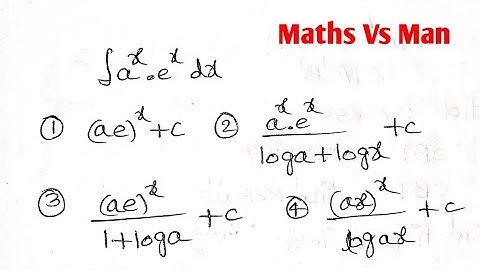 Maths Vs Man
∫aˣ·eˣ dx
① (ae)ˣ+c ② aˣ·eˣ/(loga+logx) +c
③ (ae)ˣ/(1+loga) +c ④ (ax)ˣ/(logax) +c